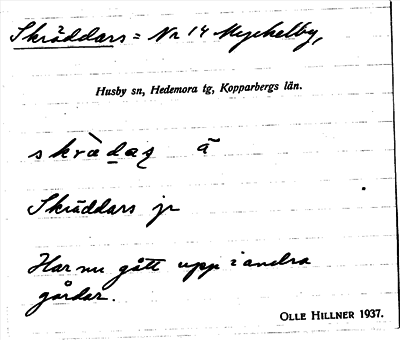 Skräddars = Nr 14 Myckelby,
Husby sn, Hedemora tg, Kopparbergs län.
skrὰdaʂ ā
Skräddars jr
Har nu gått upp i andra
gårdar.
OLLE HILLNER 1937.